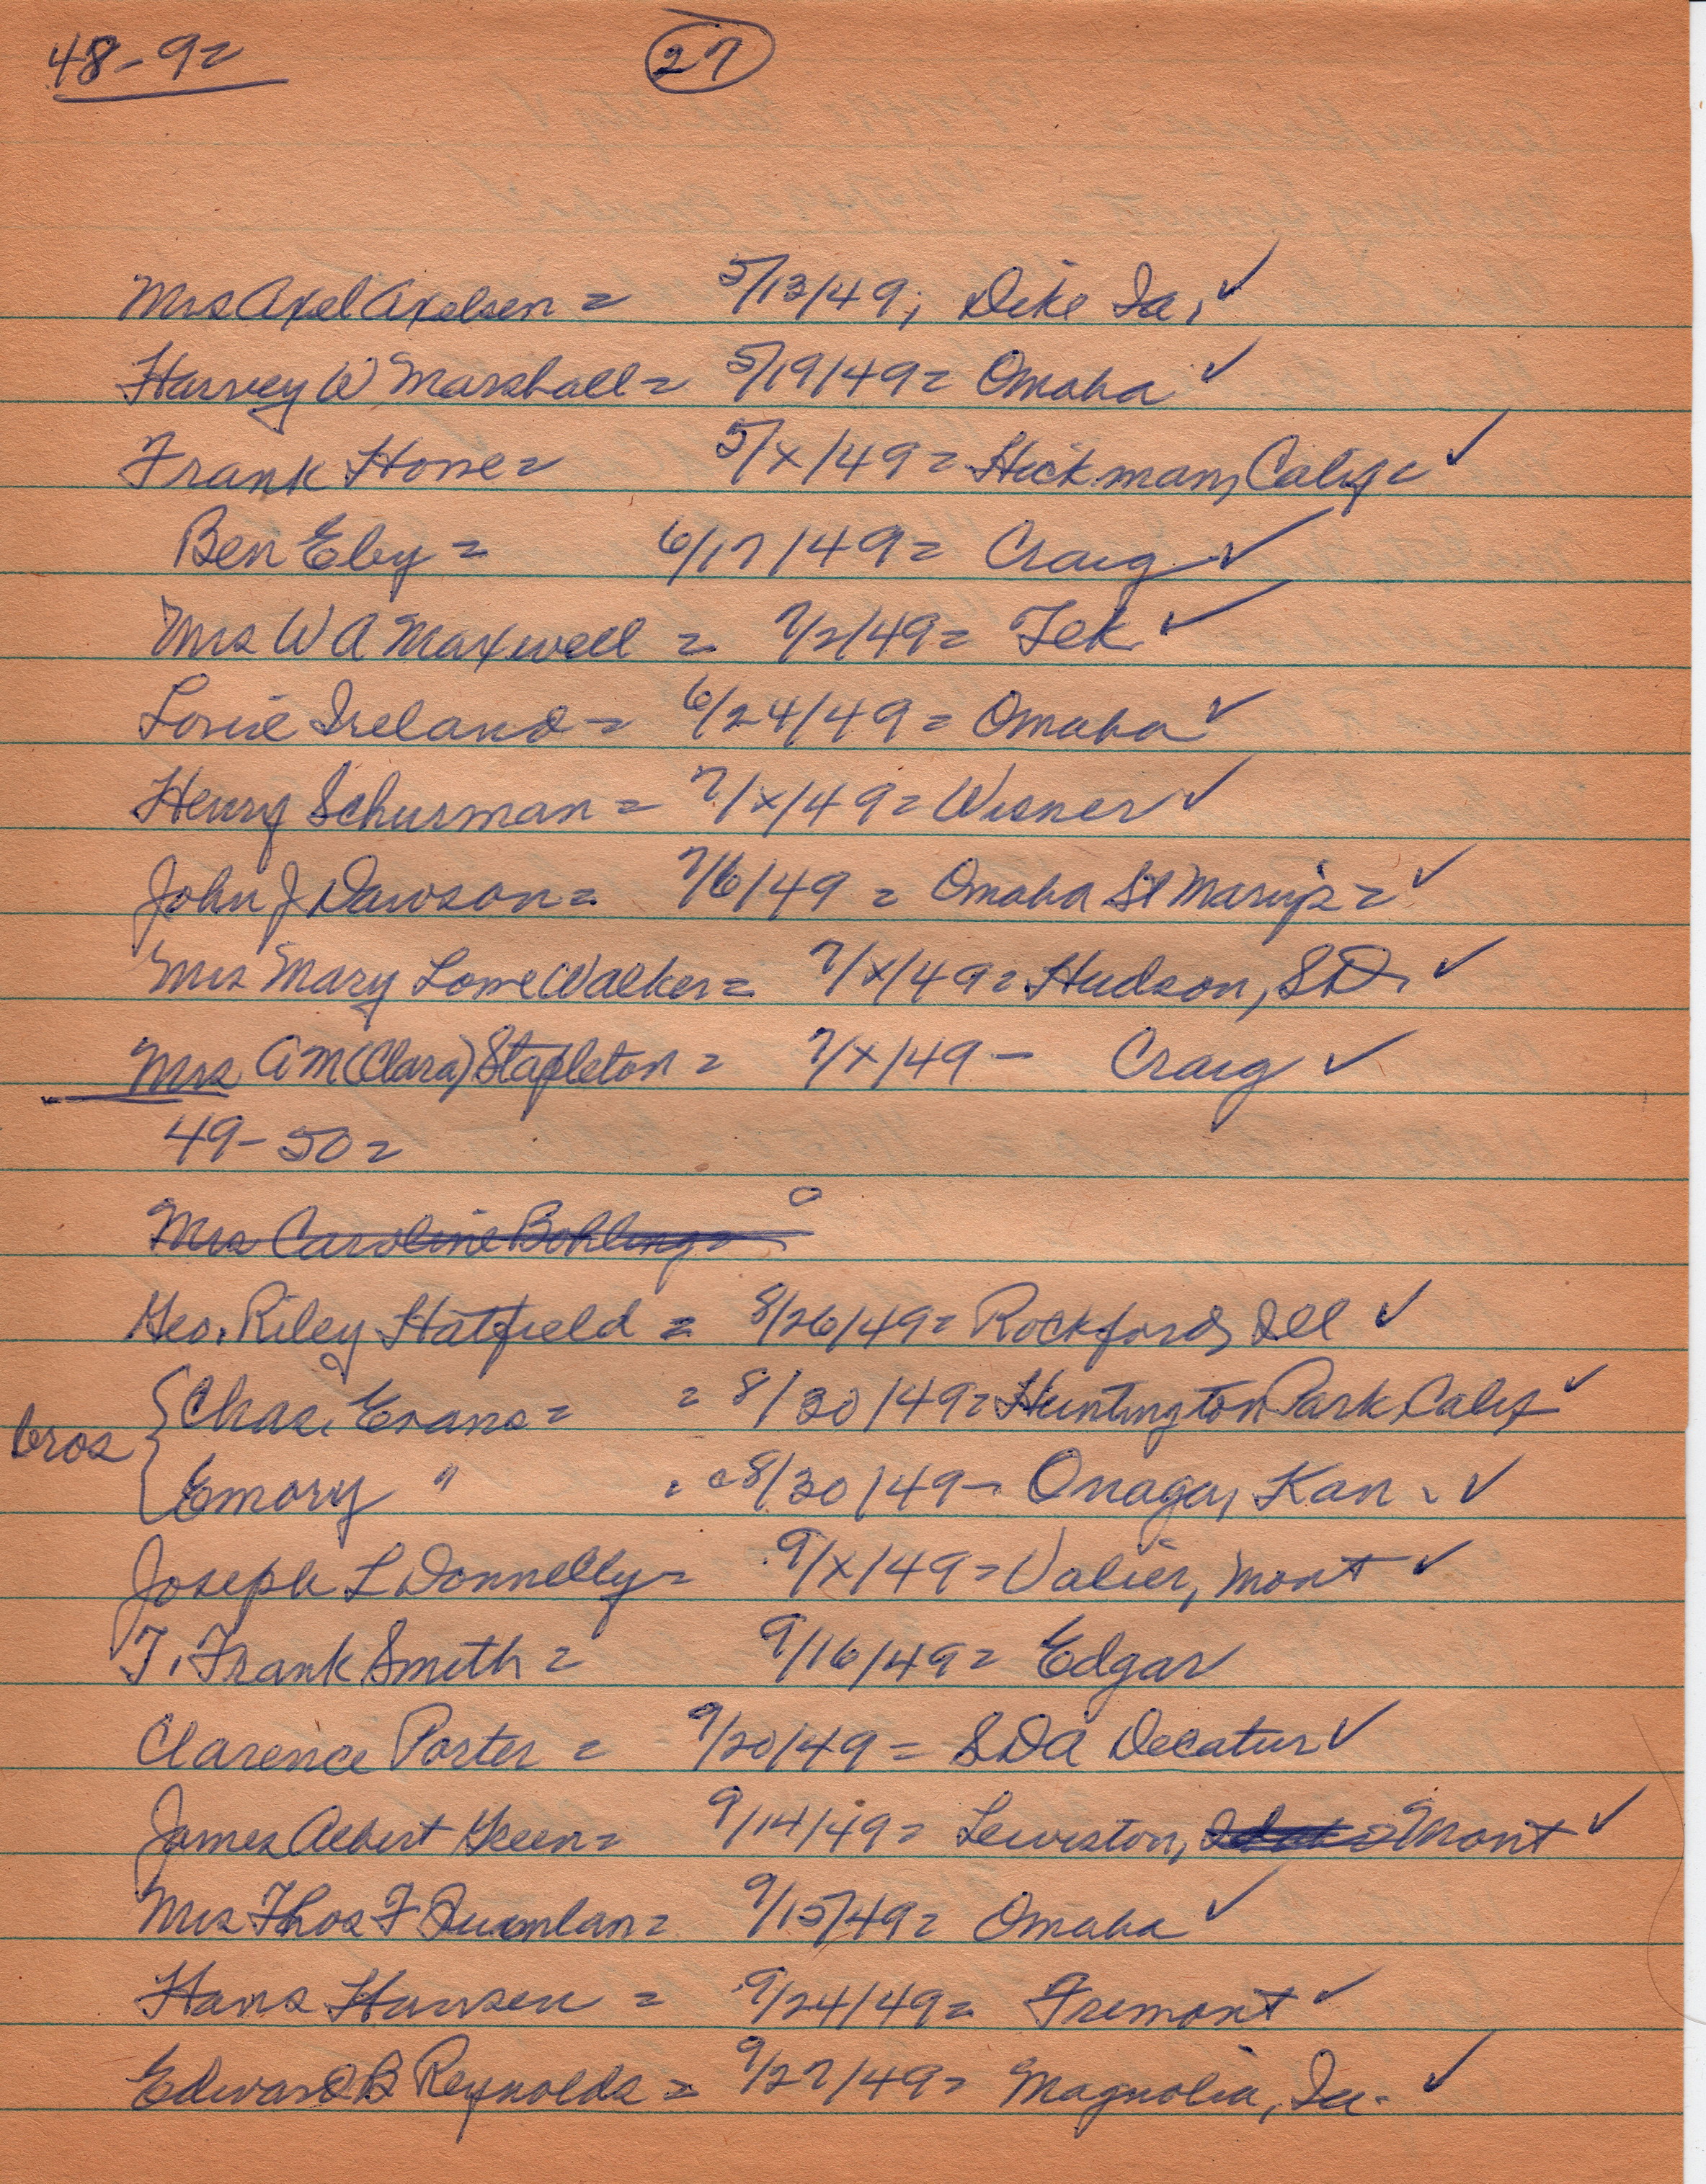 48-9=
27
Mrs Axel Axelsen = 5/13/49, Dike Ia, ✓
Harvey W Marshall = 5/19/49 = Omaha ✓
Frank Hone = 5/x/49 = Hickman, Calif = ✓
Ben Eby = 6/17/49 = Craig ✓
Mrs W A Maxwell = 7/2/49 = Tek ✓
Louie Ireland = 6/24/49 = Omaha ✓
Henry Schurman = 7/x/49 = Wisner ✓
John J Dawson = 7/6/49 = Omaha St Mary's = ✓
Mrs Mary Lowe Walker = 7/x/49 = Hudson, SD. ✓
Mrs A M (Clara) Stapleton = 7/x/49 - Craig ✓
49-50=
Mrs Caroline Bohling =
Geo. Riley Hatfield = 8/26/49 = Rockford, Ill ✓
Chas. Evans = = 8/30/49 = Huntington Park, Calif ✓
bros
Emory " 8/30/49 - Onaga, Kan. ✓
Joseph L Donnelly = 9/x/49 = Valier, Mont ✓
T. Frank Smith = 9/16/49 = Edgar
Clarence Porter = 9/20/49 = SDA Decatur ✓
James Albert Green = 9/14/49 = Lewiston, Mont ✓
Mrs Thos F Quinlan = 9/15/49 = Omaha ✓
Hans Hansen = 9/24/49 = Fremont ✓
Edward B Reynolds = 9/27/49 = Magnolia, Ia. ✓